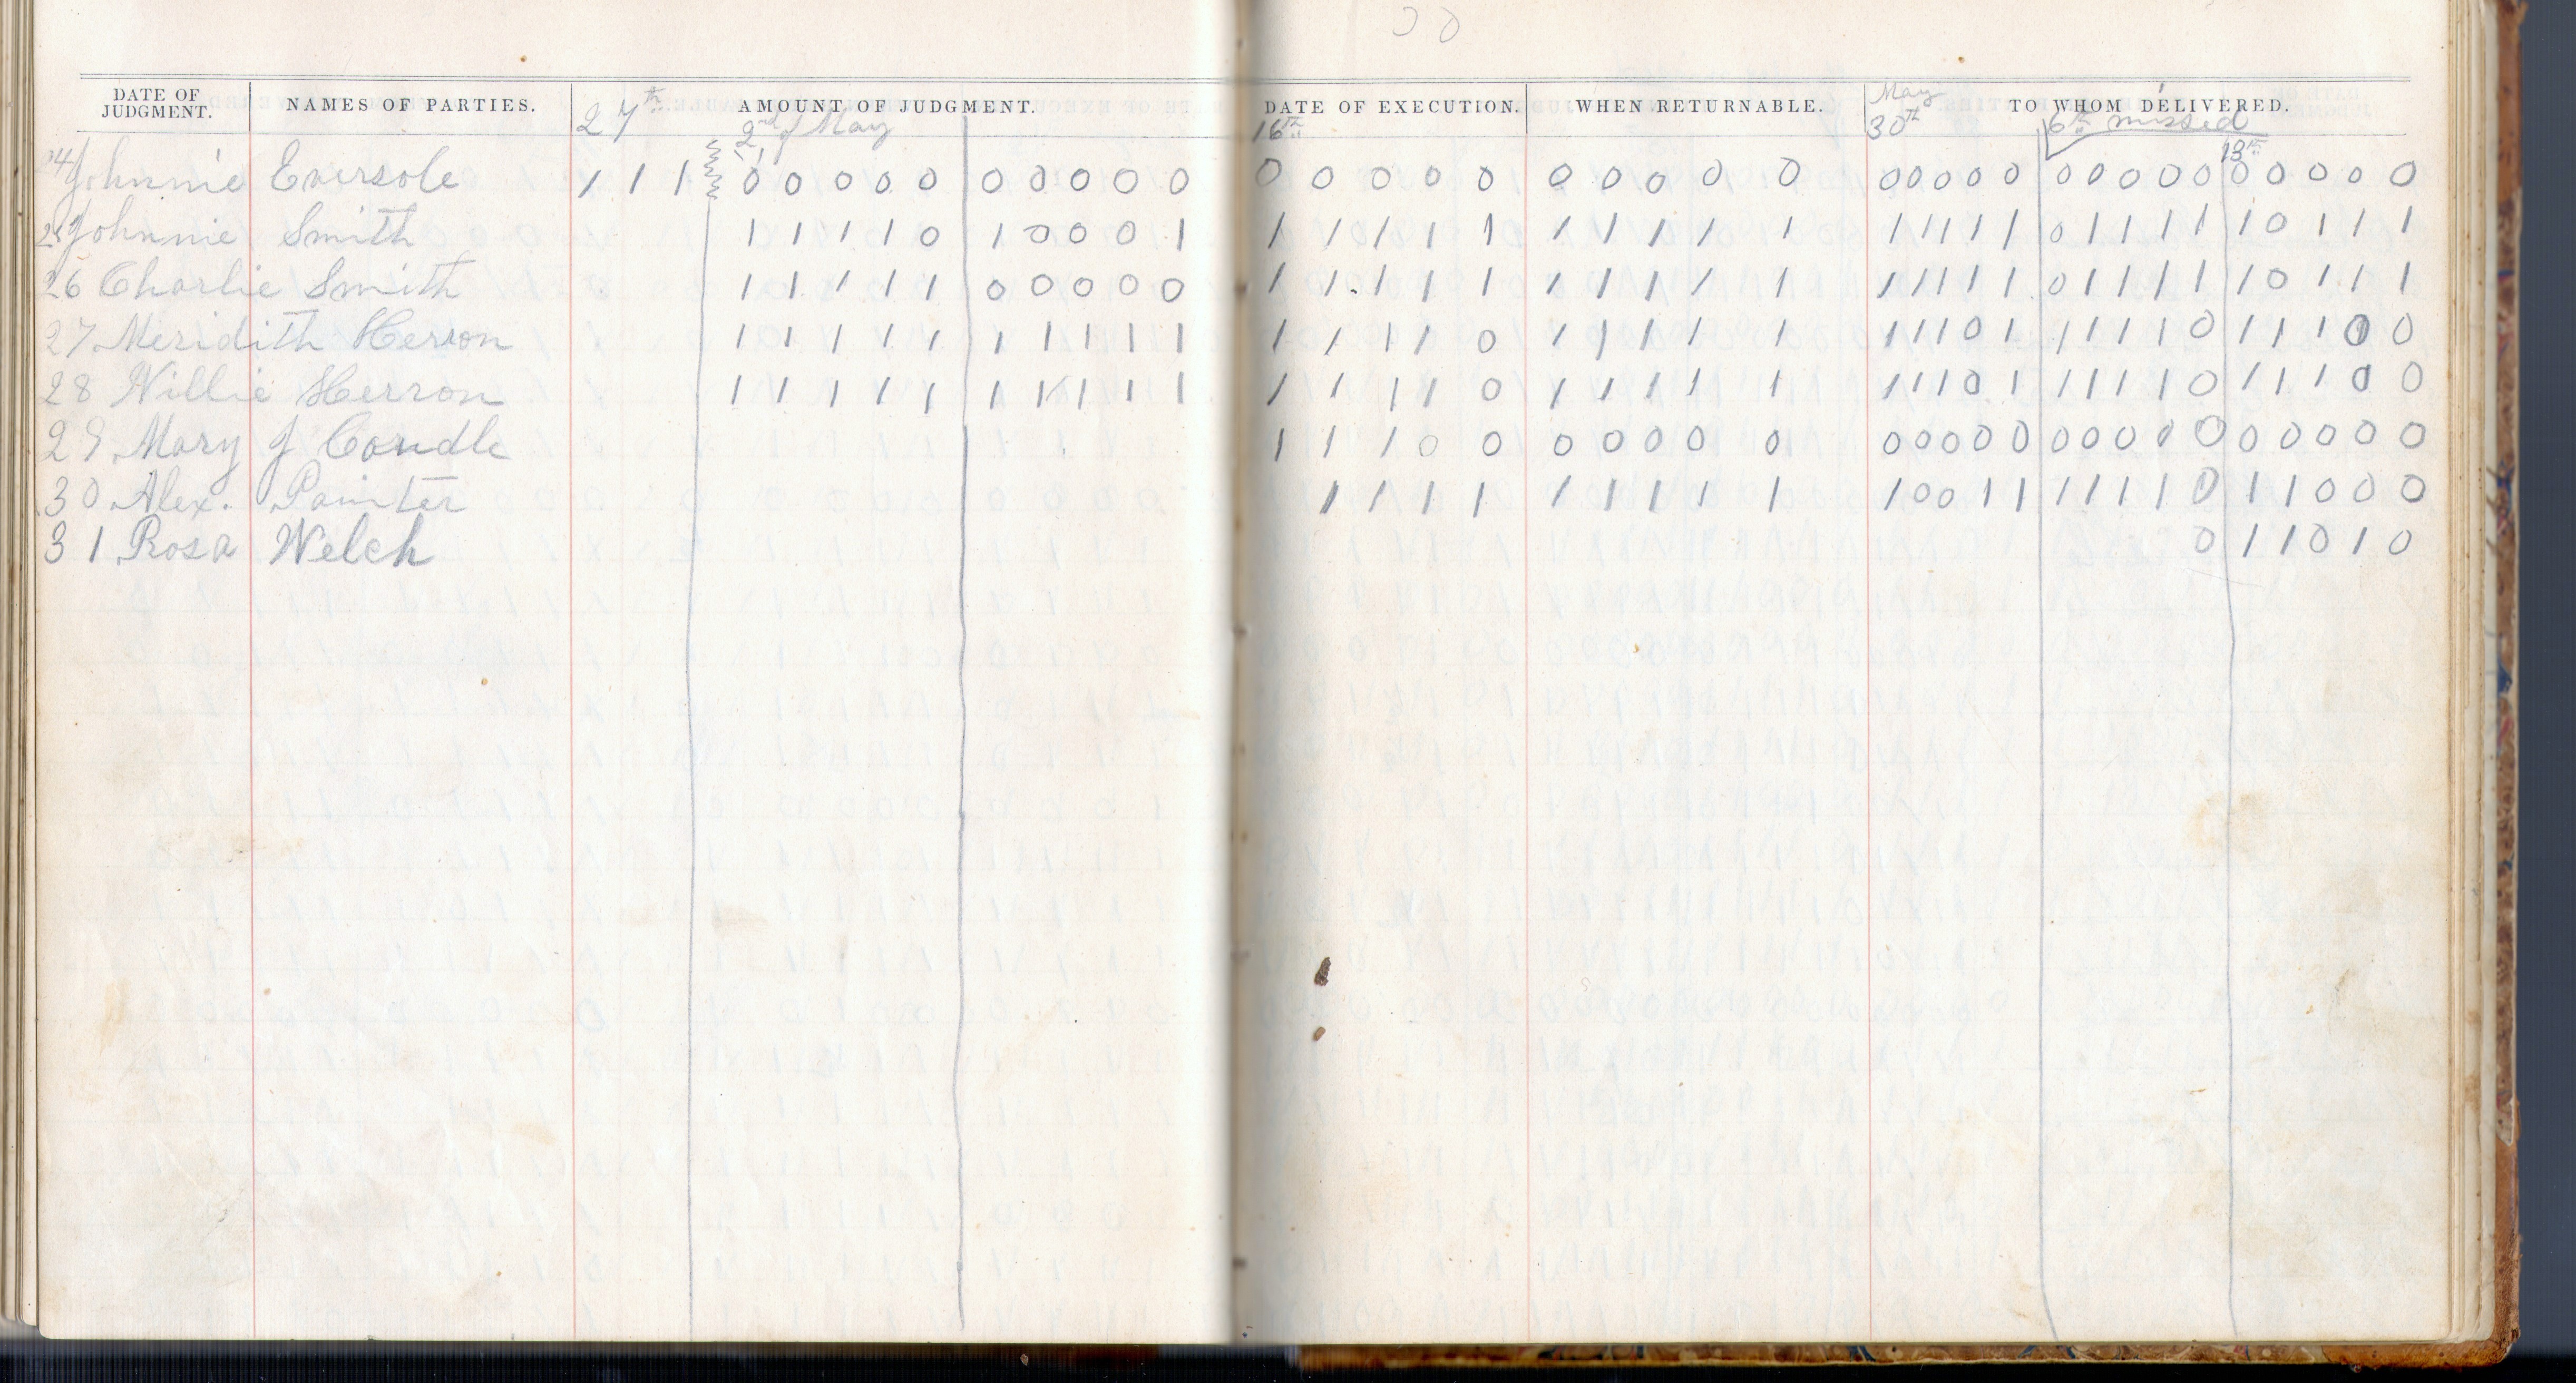 30
DATE OF JUDGMENT. NAMES OF PARTIES. 27th AMOUNT OF JUDGMENT. DATE OF EXECUTION. WHEN RETURNABLE. May TO WHOM DELIVERED.
2nd of May 16th 30th 6th missed
13th
24 Johnnie Eversole 1 1 1 0 0 0 0 0 0 0 0 0 0 0 0 0 0 0 0 0 0 0 0 0 0 0 0 0 0 0 0 0 0 0 0 0 0 0
25 Johnnie Smith 1 1 1 1 0 1 0 0 0 1 1 1 1 1 1 1 1 1 1 1 1 1 1 1 1 0 1 1 1 1 1 0 1 1 1
26 Charlie Smith 1 1 1 1 1 0 0 0 0 0 1 1 1 1 1 1 1 1 1 1 1 1 1 1 1 0 1 1 1 1 1 0 1 1 1
27 Meridith Herron 1 1 1 1 1 1 1 1 1 1 1 1 1 1 0 1 1 1 1 1 1 1 1 0 1 1 1 1 1 0 1 1 1 0 0
28 Willie Herron 1 1 1 1 1 1 1 1 1 1 1 1 1 1 0 1 1 1 1 1 1 1 1 0 1 1 1 1 1 0 1 1 1 0 0
29 Mary J Caudle 1 1 1 0 0 0 0 0 0 0 0 0 0 0 0 0 0 0 0 0 0 0 0 0 0
30 Alex. Painter 1 1 1 1 1 1 1 1 1 1 0 0 1 1 1 1 1 1 0 1 1 0 0 0
31 Rosa Welch 0 1 1 0 1 0